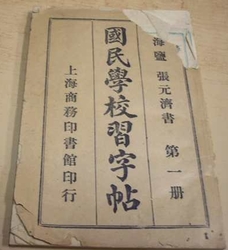 海鹽 張元濟書 第一册
國民學校習字帖
上海商務印書館印行